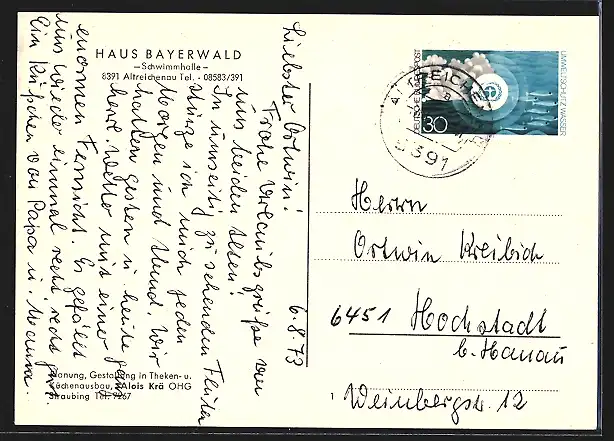 HAUS BAYERWALD
—Schwimmhalle—
8391 Altreichenau Tel. - 08583/391
6.8.73
Liebster Ortwin!
Frohe Urlaubsgrüße von
uns beiden Alten!
In umseitig zu sehenden Fluten
stürze ich mich jeden
Morgen und Abend. Wir
hatten gestern u. heute ganz
herrl. Wetter mit einer
enormen Fernsicht. Es gefällt
uns wieder einmal recht, recht gut.
Ein Küßchen von Papa u. Mama.
Planung, Gestaltung in Theken- u.
Küchenausbau, Alois Krä OHG
Straubing Tel. 7267
DEUTSCHE BUNDESPOST
30
UMWELTSCHUTZ WASSER
ALTREICHENAU
8391
Herrn
Ortwin Kreibich
6451 Hochstadt
b. Hanau
1
Weinbergstr. 12